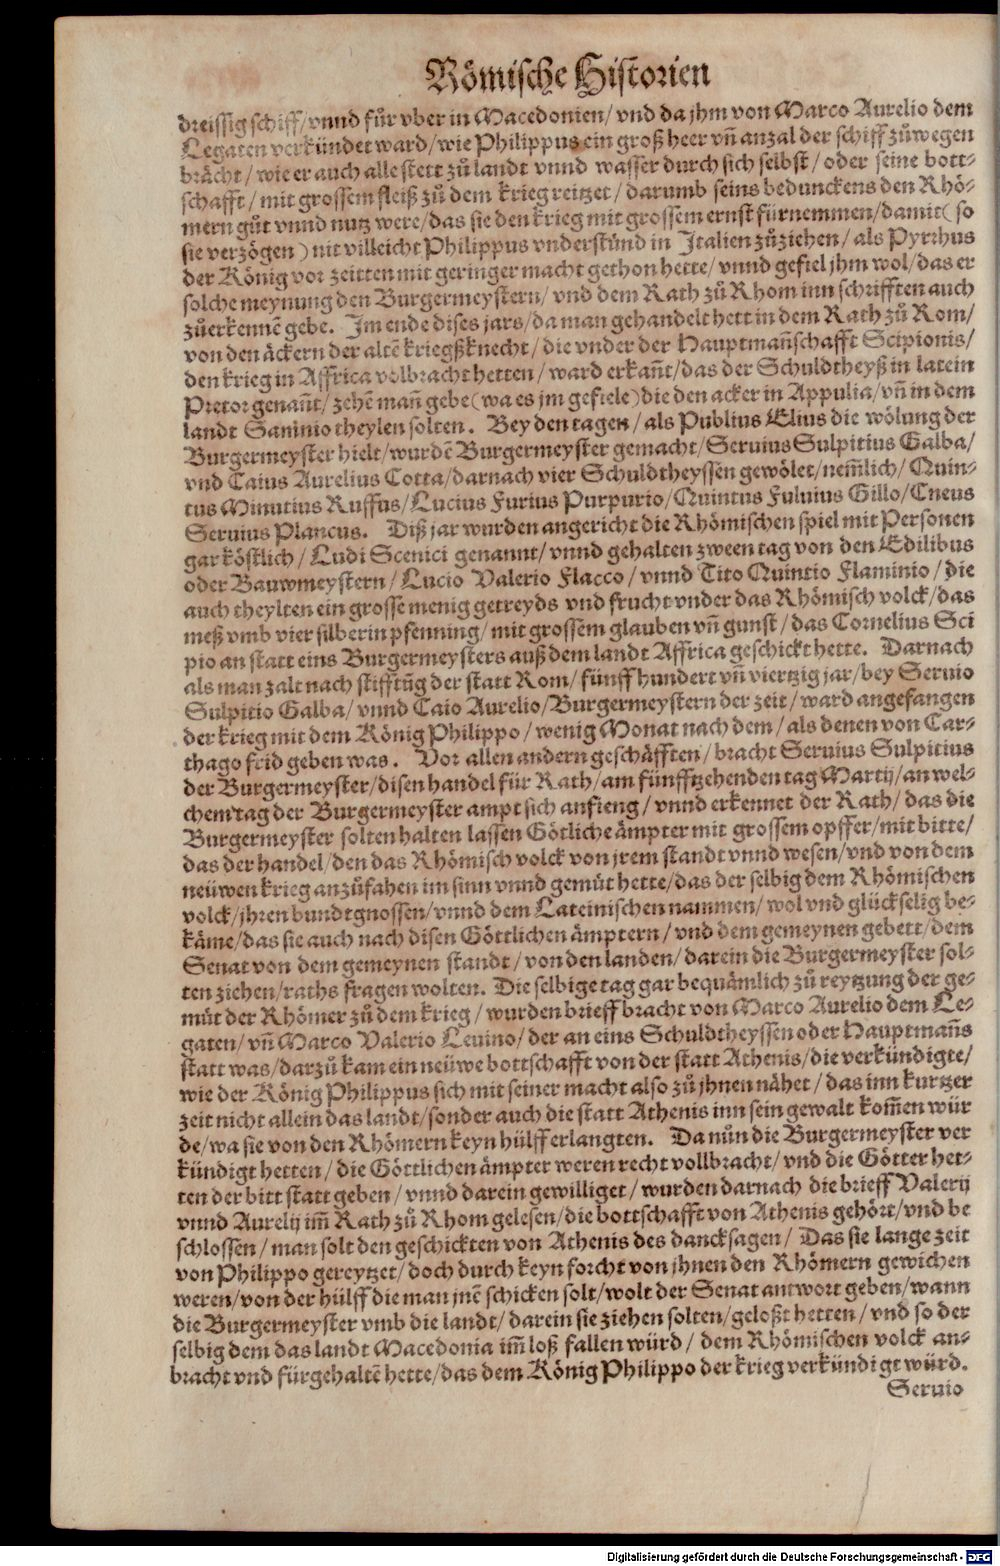 Römische Historien
dreissig schiff/vnnd fůr vber in Macedonien/vnd da jhm von Marco Aurelio dem
Legaten verkündet ward/wie Philippus ein groß heer vñ anzal der schiff zůwegen
brächt/wie er auch alle stett zů landt vnnd wasser durch sich selbst/oder seine bott-
schafft/mit grossem fleiß zů dem krieg reitzet/darumb seins bedunckens den Rhö-
mern gůt vnnd nutz were/das sie den krieg mit grossem ernst fürnemmen/damit (so
sie verzögen) nit villeicht Philippus vnderstůnd in Italien zůziehen/als Pyrrhus
der König vor zeitten mit geringer macht gethon hette/vnnd gefiel jhm wol/das er
solche meynung den Burgermeystern/vnd dem Rath zů Rhom inn schrifften auch
zůerkennẽ gebe. Im ende dises jars/da man gehandelt hett in dem Rath zů Rom/
von den äckern der altẽ kriegßknecht/die vnder der Hauptmañschafft Scipionis/
den krieg in Affrica volbracht hetten/ward erkañt/das der Schuldtheyß in latein
Pretor genañt/zehẽ mañ gebe (wa es jm gefiele) die den acker in Appulia/vñ in dem
landt Saninio theylen solten. Bey den tagen/als Publius Elius die wölung der
Burgermeyster hielt/wurdẽ Burgermeyster gemacht/Seruius Sulpitius Galba/
vnd Caius Aurelius Cotta/darnach vier Schuldtheyssen gewölet/nem̃lich/Quin-
tus Minutius Ruffus/Lucius Furius Purpurio/Quintus Fuluius Gillo/Cneus
Seruius Plancus. Diß jar wurden angericht die Rhömischen spiel mit Personen
gar köstlich/Ludi Scenici genannt/vnnd gehalten zween tag von den Edilibus
oder Bauwmeystern/Lucio Valerio Flacco/vnnd Tito Quintio Flaminio/die
auch theylten ein grosse menig getreyds vnd frucht vnder das Rhömisch volck/das
meß vmb vier silberin pfenning/mit grossem glauben vñ gunst/das Cornelius Sci
pio an statt eins Burgermeysters auß dem landt Affrica geschickt hette. Darnach
als man zalt nach stifftũg der statt Rom/fünff hundert vñ viertzig jar/bey Seruio
Sulpitio Galba/vnnd Caio Aurelio/Burgermeystern der zeit/ward angefangen
der krieg mit dem König Philippo/wenig Monat nach dem/als denen von Car-
thago frid geben was. Vor allen andern geschäfften/bracht Seruius Sulpitius
der Burgermeyster/disen handel für Rath/am fünfftzehenden tag Martij/an wel-
chem tag der Burgermeyster ampt sich anfieng/vnnd erkennet der Rath/das die
Burgermeyster solten halten lassen Götliche ämpter mit grossem opffer/mit bitte/
das der handel/den das Rhömisch volck von jrem standt vnnd wesen/vnd von dem
neüwen krieg anzůfahen im sinn vnnd gemüt hette/das der selbig dem Rhömischen
volck/jhren bundtgnossen/vnnd dem Lateinischen nammen/wol vnd glückselig be-
käme/das sie auch nach disen Göttlichen ämptern/vnd dem gemeynen gebett/dem
Senat von dem gemeynen standt/von den landen/darein die Burgermeyster sol-
ten ziehen/raths fragen wolten. Die selbige tag gar bequämlich zů reytzung der ge-
müt der Rhömer zů dem krieg/wurden brieff bracht von Marco Aurelio dem Le-
gaten/vñ Marco Valerio Leuino/der an eins Schuldtheyssen oder Hauptmañs
statt was/darzů kam ein neüwe bottschafft von der statt Athenis/die verkündigte/
wie der König Philippus sich mit seiner macht also zů jhnen nähet/das inn kurtzer
zeit nicht allein das landt/sonder auch die statt Athenis inn sein gewalt kom̃en wür
de/wa sie von den Rhömern keyn hülff erlangten. Da nůn die Burgermeyster ver
kündigt hetten/die Göttlichen ämpter weren recht vollbracht/vnd die Götter het-
ten der bitt statt geben/vnnd darein gewilliget/wurden darnach die brieff Valerij
vnnd Aurelij im̃ Rath zů Rhom gelesen/die bottschafft von Athenis gehört/vnd be
schlossen/man solt den geschickten von Athenis des dancksagen/Das sie lange zeit
von Philippo gereytzet/doch durch keyn forcht von jhnen den Rhömern gewichen
weren/von der hülff die man jnẽ schicken solt/wolt der Senat antwort geben/wann
die Burgermeyster vmb die landt/darein sie ziehen solten/geloßt hetten/vnd so der
selbig dem das landt Macedonia im̃ loß fallen würd/dem Rhömischen volck an-
bracht vnd fürgehaltẽ hette/das dem König Philippo der krieg verkündigt würd.
Seruio
Digitalisierung gefördert durch die Deutsche Forschungsgemeinschaft - DFG